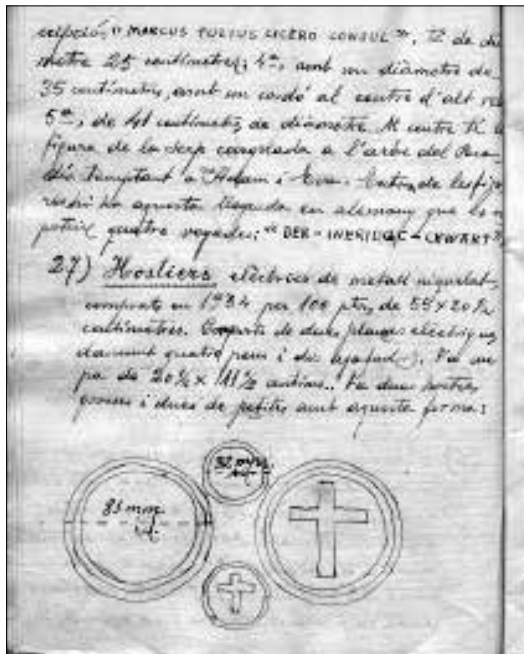 cripció, "MARCUS TULIUS CICERO CONSUL", Té de dià
metre 25 centímetres; 4ª, amb un diàmetre de
35 centímetres, amb un cordó al centre d'alt re
5ª, de 41 centímetres de diàmetre. Al centre té la
figura de la serp cargolada a l'arbre del Para
dís temptant a Adam i Eva.
aquesta llegenda en alemany que es re
quatre vegades: "DER = INERIDGC = CEWART"
27) Hostiers elèctrics de metall niquelat,
comprats en 1934 per 100 ptes, de 59 x 20 ½
centímetres. de dues planxes elèctriques
damunt quatre peus i dos Fa
de 20 ½ x 11 ½ Fa dues hosties
grosses i dues de petites amb aquesta forma:
32 m/m.
85 mm.